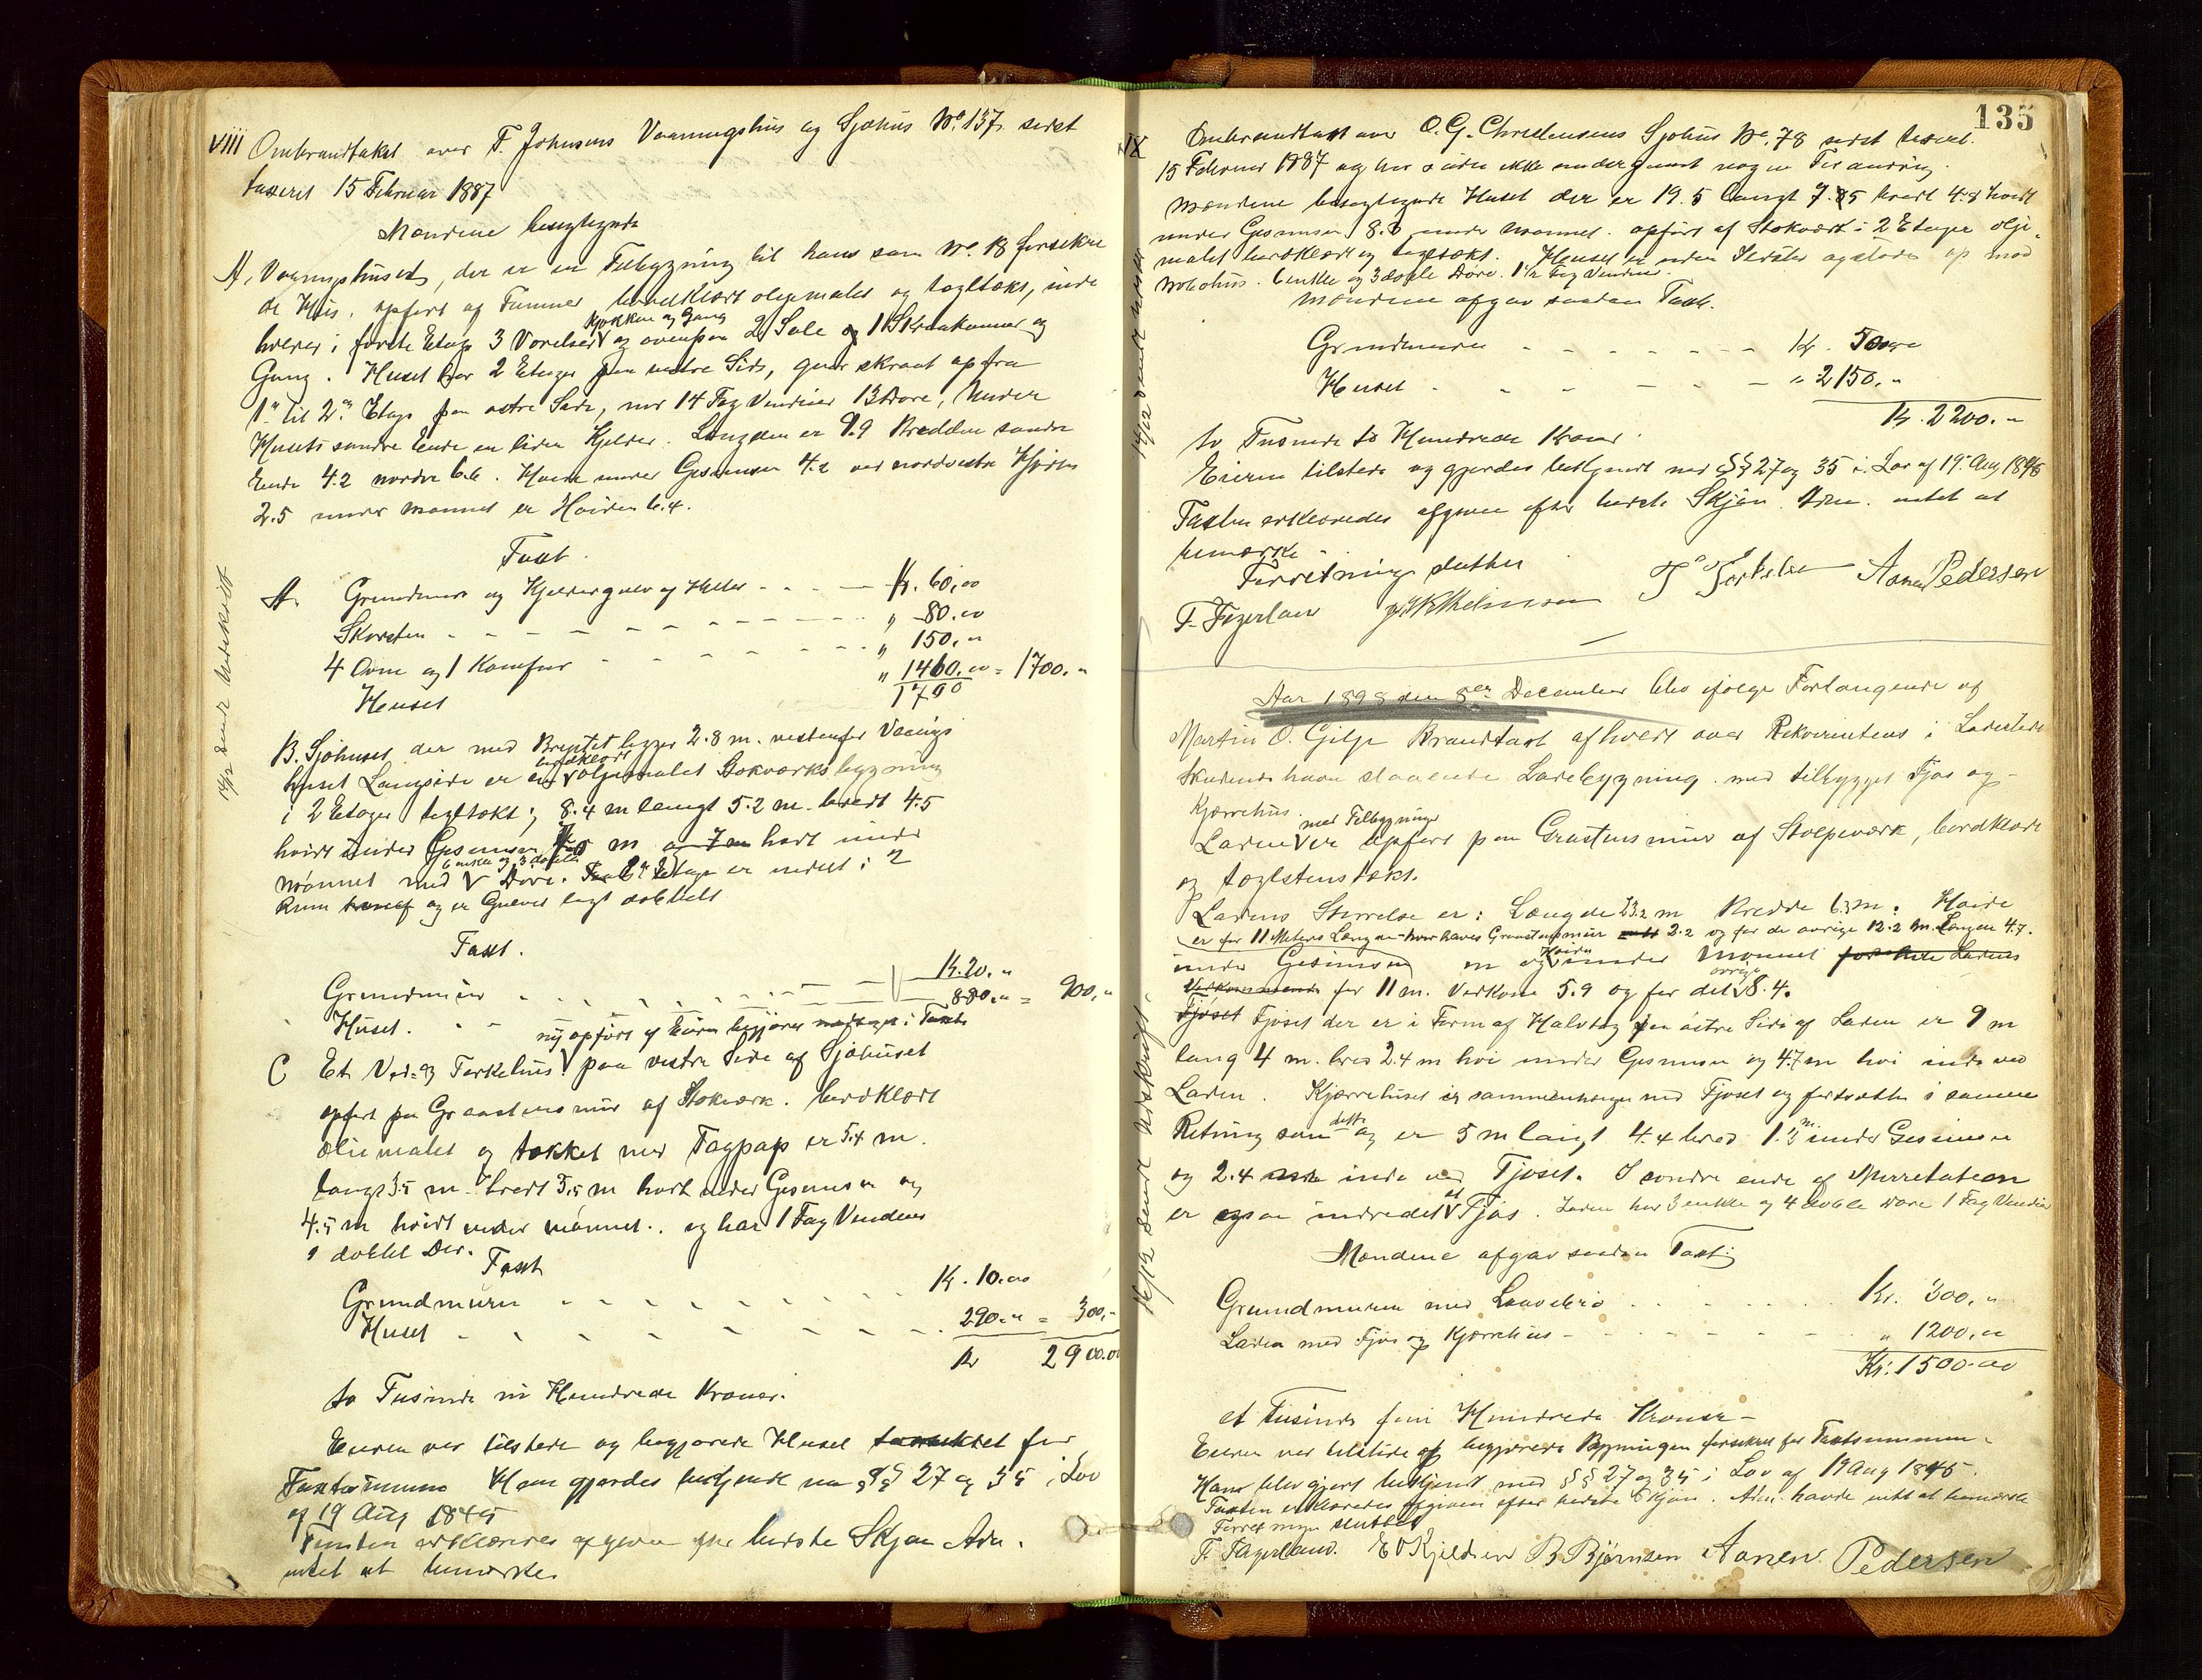 viii Ombrandtakst over F. Johnsens Vaaningshus og Sjøhus No. 137 sidst
taxeret 15 Februar 1887
Mændene besigtigede
A, Vaaningshuset, der er en Tilbygning til hans som No. 18 forsikre
de Hus, opført af Tømmer bordklædt oljemalet og tagltækt, inde
holder i første Etage 3 Værelser kjøkken og Gang og ovenpaa 2 Sale og 1 Skraakammer og
Gang. Huset har 2 Etager paa vestre Side, gaar skraat op fra
1ste til 2den Etage paa østre Side, med 14 Fag Vinduer 13 Døre, Under
Husets søndre Ende en liden Kjelder. Længden er 9.9 Bredden søndre
Ende 4.2 nordre 6.6. Høide under Gesimsen 4.2 ved nordvestre Hjørne
2.5 under Mønnet er Høiden 6.4.
Taxt.
A. Grundmur og Kjeldergulv af Heller - - - Kr. 60,00
Skorsten - - - - - - „ 80.00
4 Ovne og 1 Komfur - - - „ 150,„
Huset „ 1460.00 = 1700.„
1700
B. Sjøhuset, der med Brystet ligger 2.8 m. vestenfor Vaanings
huset Langside er en bordklædt oljemalet Stokværksbygning
i 2 Etager tagltækt; 8.4 m langt 5.2 m. bredt 4.5
høidt under Gesimsen m høit under
Mønnet med 6 enkle og 3 doble Døre. 2den Etage er inddelt i 2
Rum og er Gulvet lagt dobbelt
Taxt.
Grundmuren - - - Kr. 20.„
Huset. - - - 880.„ = 900,„
nyopført af Eieren begjæres medtaget i Taxten
C Et Ved- og Tørkehus paa vestre Side af Sjøhuset
opført paa Graastensmur af Stokværk. bordklædt
oliemalet og tækket med Tagpap er 5.4 m.
langt 3.5 m. bredt 3.5 m høit under Gesimsen og
4.5 m høidt under mønnet. og har 1 Fag Vinduer
1 dobbel Dør.
Taxt
Grundmuren - - - Kr. 10.00
Huset - - - 290.„ = 300,„
Kr 2900.00
to Tusinde ni Hundrede Kroner.
Eieren var tilstede og begjærede Huset for
Taxtsummen Han gjordes bekjendt med §§ 27 og 35 i Lov
af 19 Aug 1845
Taxten erklæredes afgiven efter bedste Skjøn Adm.
intet at bemærke.
14/12 sendt Udskrift
135
IX Ombrandtaxt over O. G. Christensens Sjøhus No. 78 sidst taxeret
15 Februar 1887 og har siden ikke undergaaet nogen Forandring
Mændene besigtigede Huset der er 19.5 langt 7.5 bredt 4.8 høidt
under Gesimsen 8.3 under mønnet. opført af Stokværk i 2 Etager olje
malet bordklædt og tagltækt. Huset er uden Ildsted og støder op mod
Nabohus. 6 enkle og 3 doble Døre. Fag Vinduer.
Mændene afgav saadan Taxt.
Grundmuren - - - Kr. 50,00
Huset - - - „ 2150.„
Kr. 2200.„
to Tusinde to Hundrede Kroner.
Eieren tilstede og gjordes bekjendt med §§ 27 og 35 i Lov af 19. Aug 1845
Taxten erklæredes afgiven efter bedste Skjøn. Adm. intet at
bemærke.
Forretningen sluttet
T. Torkelsen Aanen Pedersen
F. Fagerland
14/12 sendt udskr
Aar 1898 den 8de December blev ifølge Forlangende af
Martin O. Gilje Brandtaxt afholdt over Rekvirentens i Ladested
Skudeneshavn staaende Ladebygning med tilbygget Fjøs og
Kjærrehus.
Laden med Tilbygning er opført paa Graastensmur af Stolpeværk, bordklædt
og taglstenstækt.
Ladens Størrelse er: Længde 23.2 m Bredde 6.3 m. Høide
er for 11 Meters Længde - hvor haves Graastensmur 2.2 og for de øvrige 12.2 m. Længde 4.7.
under Gesimsen m og Høiden under Mønnet for hele Ladens
Vedkommende for 11 m. Vedkom. 5.9 og for det øvrige 8.4.
Fjøset Fjøset der er i Form af Halvtag paa østre Side af Laden er 9 m
lang 4 m. bred 2.4 m høi under Gesimsen og 4.7 m høi inde ved
Laden. Kjærrehuset er sammenhængende med Fjøset og fortsætter i samme
Retning som dette og er 5 m langt 4.4 bred 1.3 m. under Gesimsen
og 2.4 inde ved Fjøset. I søndre ende af
er ogsaa indredet et Fjøs. Laden har 3 enkle og 4 doble Døre 1 Fag Vinduer
Mændene afgav saadan Taxt:
Grundmuren med Laavebro - - - Kr. 300,„
Laden med Fjøs og Kjærrehus - - - „ 1200,00
Kr. 1500.00
et Tusinde fem Hundrede Kroner -
Eieren var tilstede og begjærede Bygningen forsikret for Taxtsummen.
Han blev gjort bekjendt med §§ 27 og 35 i Lov af 19 Aug 1845.
Taxten erklæredes afgiven efter bedste Skjøn. Adm. havde intet at bemærke
Forretningen sluttet
F. Fagerland. E O Kjeldsen B Bjørnsen Aanen Pedersen
14/12 sendt Udskrift.